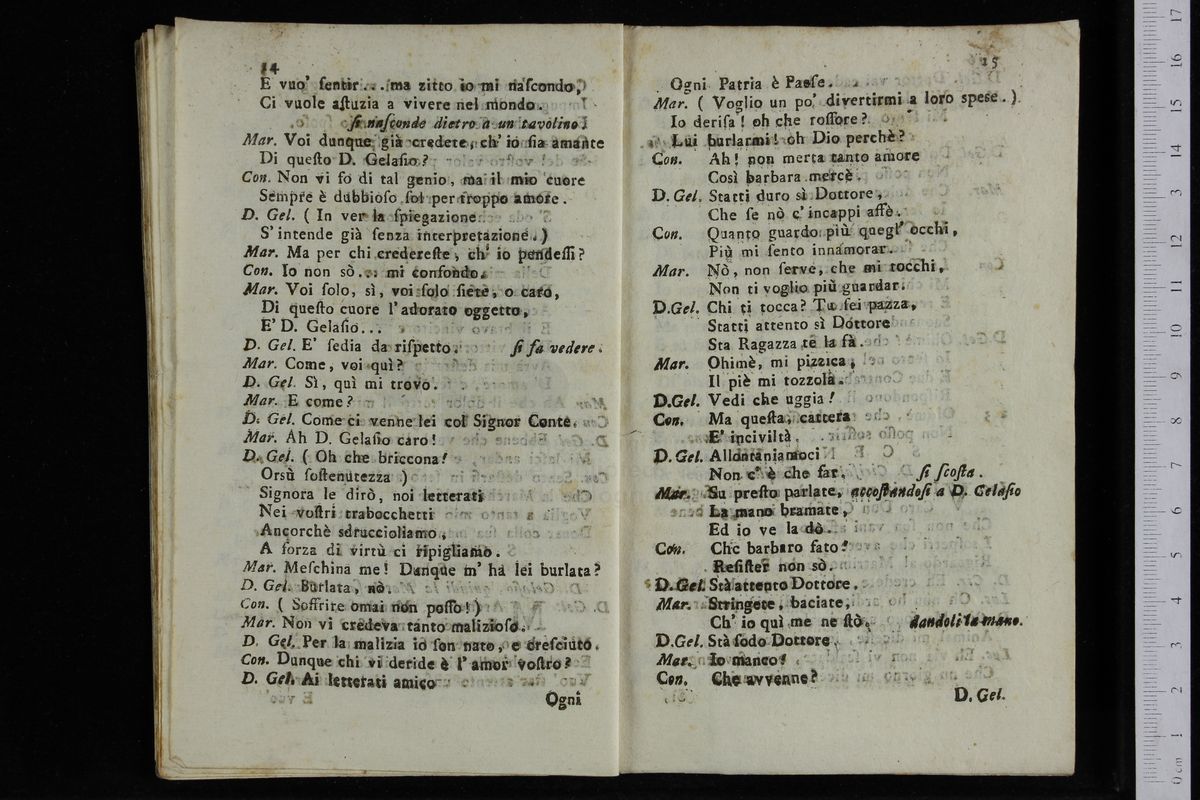 14
E vuo' ſentir... ma zitto io mi naſcondo,
Ci vuole aſtuzia a vivere nel mondo.
ſi naſconde dietro a un tavolino.
Mar. Voi dunque già credete, ch' io ſia amante
Di queſto D. Gelaſio?
Con. Non vi fo di tal genio, ma il mio cuore
Sempre è dubbioſo ſol per troppo amore.
D. Gel. ( In ver la ſpiegazione
S' intende già ſenza interpretazione. )
Mar. Ma per chi credereſte, ch' io pendeſſi?
Con. Io non sò... mi confondo.
Mar. Voi ſolo, sì, voi ſolo ſiete, o caro,
Di queſto cuore l' adorato oggetto,
E' D. Gelaſio...
D. Gel. E' ſedia da riſpetto. ſi fa vedere.
Mar. Come, voi quì?
D. Gel. Sì, quì mi trovo.
Mar. E come?
D. Gel. Come ci venne lei col Signor Conte.
Mar. Ah D. Gelaſio caro!
D. Gel. ( Oh che briccona!
Orsù ſoſtenutezza )
Signora le dirò, noi letterati
Nei voſtri trabocchetti
Ancorchè sdruccioliamo,
A forza di virtù ci ripigliamo.
Mar. Meſchina me! Dunque m' ha lei burlata?
D. Gel. Burlata, nò.
Con. ( Soffrire omai non poſſo! )
Mar. Non vi credeva tanto malizioſo.
D. Gel. Per la malizia io ſon nato, e creſciuto.
Con. Dunque chi vi deride è l' amor voſtro?
D. Gel. Ai letterati amico
Ogni
15
Ogni Patria è Paeſe.
Mar. ( Voglio un po' divertirmi a loro spese. )
Io deriſa! oh che roſſore?
Lui burlarmi! oh Dio perchè?
Con. Ah! non merta tanto amore
Così barbara mercè.
D. Gel. Statti duro sì Dottore,
Che ſe nò c' incappi affè.
Con. Quanto guardo più quegl' occhi,
Più mi ſento innamorar.
Mar. Nò, non ſerve, che mi tocchi,
Non ti voglio più guardar.
D. Gel. Chi ti tocca? Tu ſei pazza,
Statti attento sì Dottore
Sta Ragazza te la fà.
Mar. Ohimè, mi pizzica,
Il piè mi tozzola.
D. Gel. Vedi che uggia!
Con. Ma queſta, cattera
E' inciviltà.
D. Gel. Allontaniamoci
Non c' è che far. ſi ſcoſta.
Mar. Su preſto parlate, accoſtandoſi a D. Gelaſio
La mano bramate,
Ed io ve la dò.
Con. Che barbaro fato!
Reſiſter non sò.
D. Gel. Stà attento Dottore.
Mar. Stringete, baciate,
Ch' io quì me ne ſtò. dandoli la mano.
D. Gel. Stà ſodo Dottore
Mar. Io manco!
Con. Che avvenne?
D. Gel.